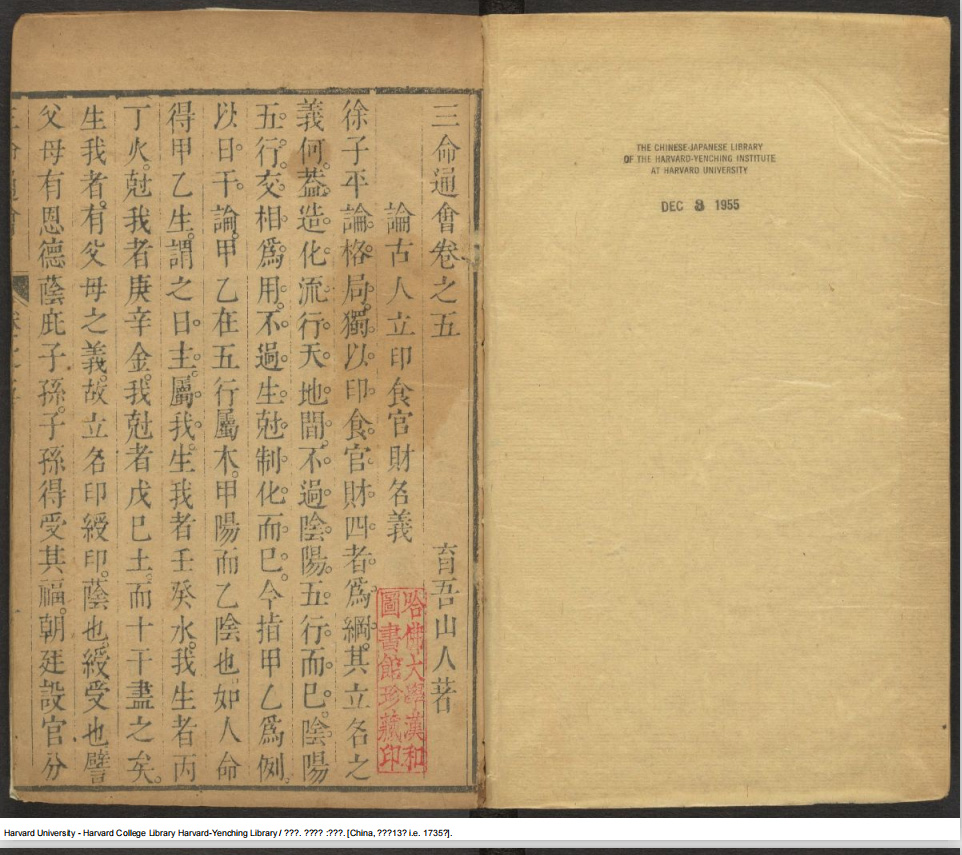 THE CHINESE-JAPANESE LIBRARY
OF THE HARVARD-YENCHING INSTITUTE
AT HARVARD UNIVERSITY
DEC 8 1955
三命通會卷之五 育吾山人著
論古人立印食官財名義
哈佛大學漢和
圖書館珍藏印
徐子平論格局獨以印食官財四者爲綱其立名之
義何葢造化流行天地間不過陰陽五行而已陰陽
五行交相爲用不過生尅制化而已今指甲乙爲例
以日干論甲乙在五行屬木甲陽而乙陰也如人命
得甲乙生謂之日主屬我生我者壬癸水我生者丙
丁火尅我者庚辛金我尅者戊巳土而十干盡之矣
生我者有父母之義故立名印綬印蔭也綬受也譬
父母有恩德蔭庇子孫子孫得受其福朝廷設官分
Harvard University - Harvard College Library Harvard-Yenching Library / ???. ???? :???. [China, ???13? i.e. 1735?].